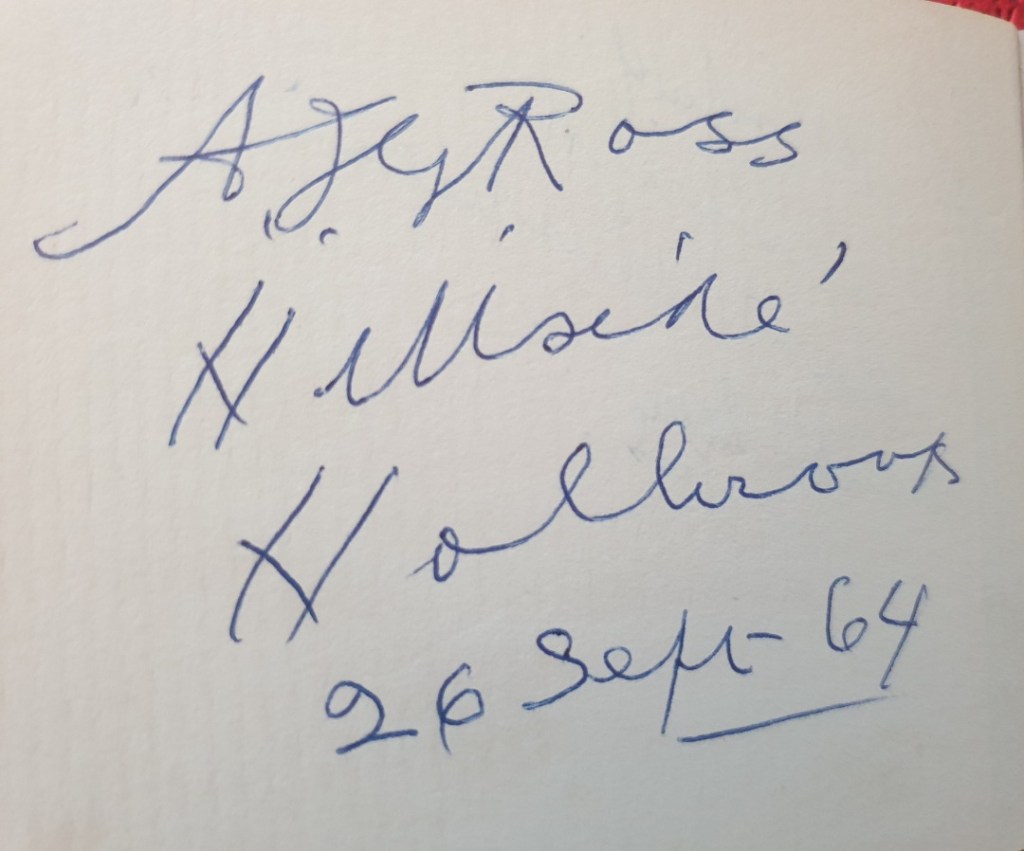 A J G Ross
"Hillside"
Holbrook
26 Sept 64